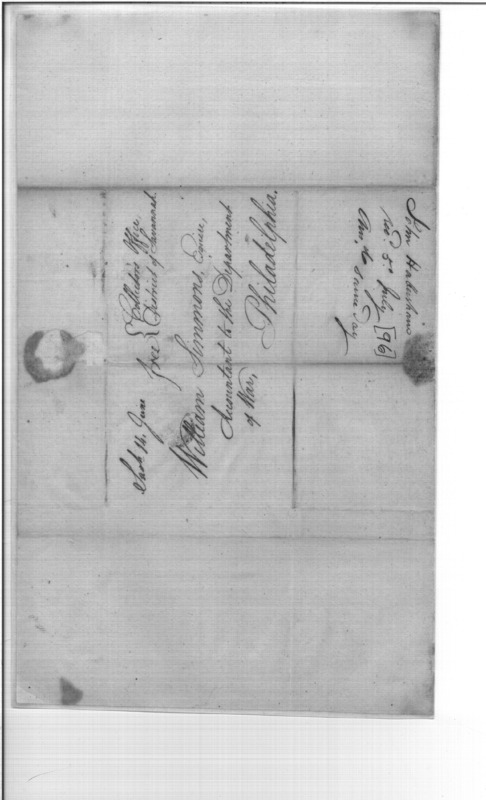 Savh 14 June
free { Collector's Office,
District of Savannah.
William Simmons Esquire,
Accountant to the Department
of War,
Philadelphia.
John Habersham's
rec. 5th July [96]
Ans. the same day